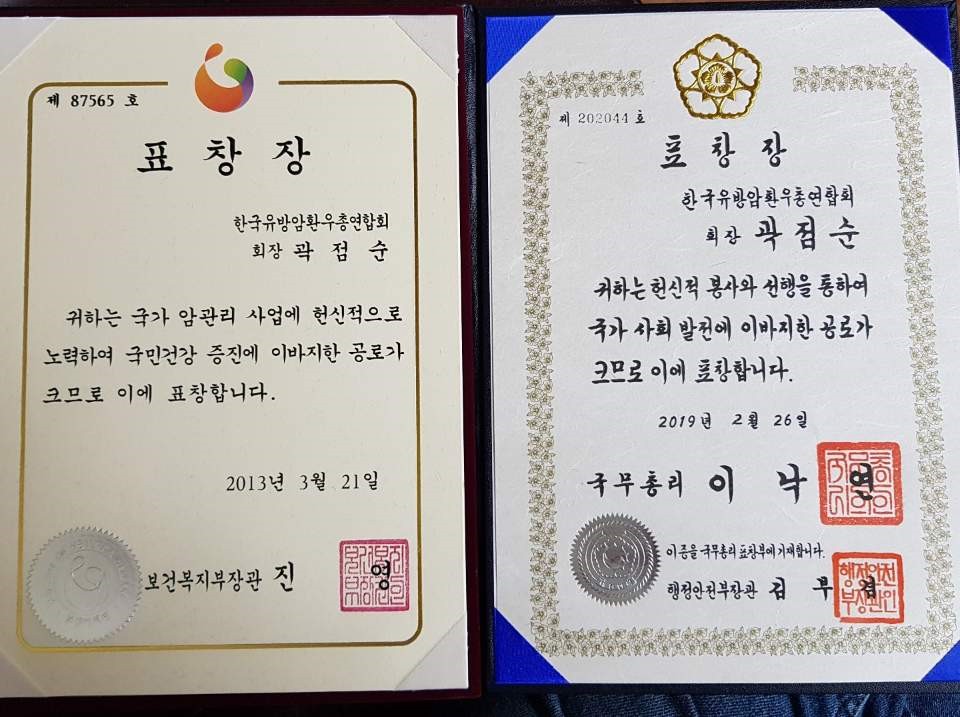 제 87565 호
표 창 장
한국유방암환우총연합회
회장 곽 점 순
귀하는 국가 암관리 사업에 헌신적으로
노력하여 국민건강 증진에 이바지한 공로가
크므로 이에 표창합니다.
2013년 3월 21일
보건복지부장관 진 영
제 202044 호
표 창 장
한국유방암환우총연합회
회장 곽 점 순
귀하는 헌신적 봉사와 선행을 통하여
국가 사회 발전에 이바지한 공로가
크므로 이에 표창합니다.
2019년 2월 26일
국무총리 이 낙 연
이 증을 국무총리 표창부에 기재합니다.
행정안전부장관 김 부 겸
행정안전
부장관인